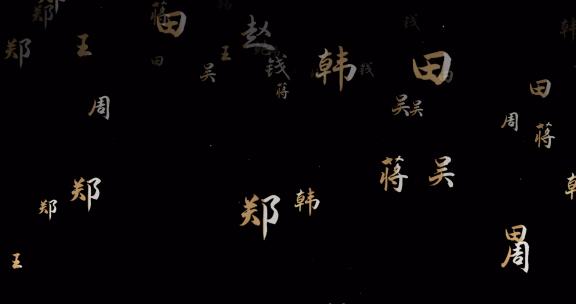 郑
郑
王
蒋
田
田
赵
钱
蒋
王
吴
韩
钱
钱
田
韩
田
周
吴
吴
周
蒋
郑
郑
郑
韩
蒋
吴
韩
王
田
周